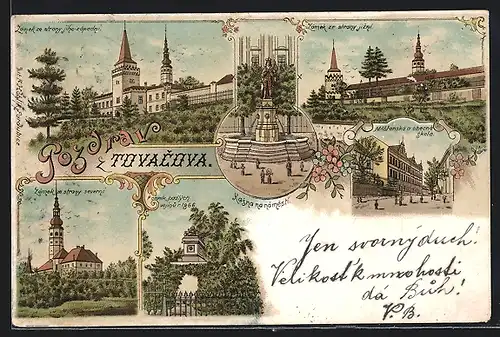 Zámek ze strany jiho-západní.
Zámek ze strany jižní.
Pozdrav
z TOVAČOVA.
Kašna na náměstí.
Měšťanská a obecná
škola.
Zámek ze strany severní.
Pomník padlých
vojínů r. 1866.
Jen svorný duch!
Velikost k mnohosti
dá Bůh!
V.B.